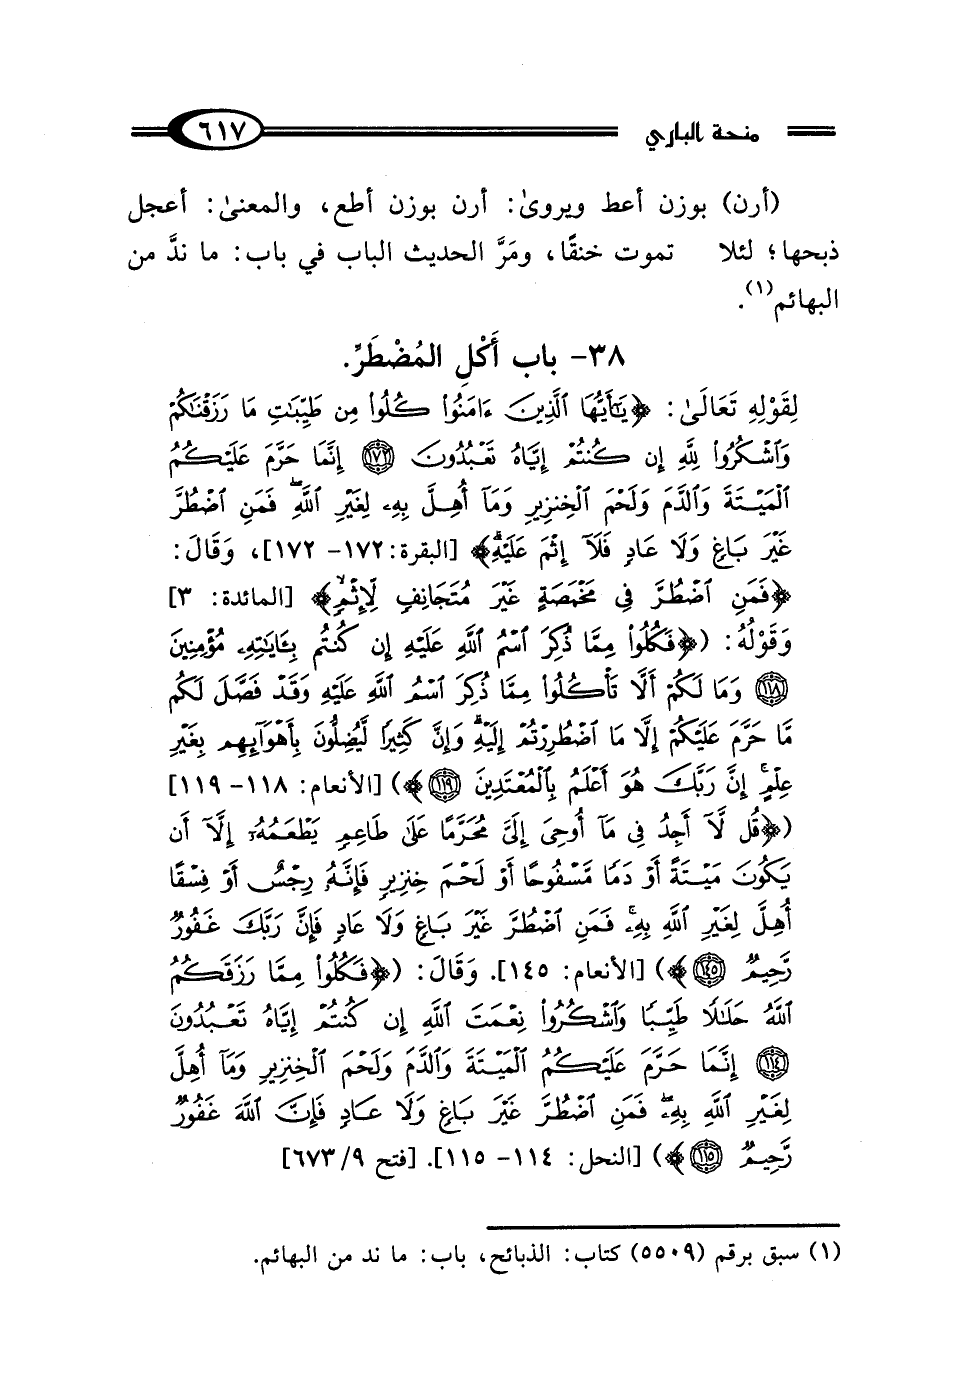 منحة الباري ٦١٧
(أرن) بوزن أعط ويروىٰ: أرن بوزن أطع، والمعنىٰ: أعجل
ذبحها؛ لئلا تموت خنقًا، ومَرَّ الحديث الباب في باب: ما ندَّ من
البهائم(١).
٣٨- باب أَكْلِ المُضْطَرِّ.
لِقَوْلِهِ تَعَالَىٰ: ﴿يَٰٓأَيُّهَا ٱلَّذِينَ ءَامَنُوا۟ كُلُوا۟ مِن طَيِّبَٰتِ مَا رَزَقْنَٰكُمْ
وَٱشْكُرُوا۟ لِلَّهِ إِن كُنتُمْ إِيَّاهُ تَعْبُدُونَ ١٧٢ إِنَّمَا حَرَّمَ عَلَيْكُمُ
ٱلْمَيْتَةَ وَٱلدَّمَ وَلَحْمَ ٱلْخِنزِيرِ وَمَآ أُهِلَّ بِهِۦ لِغَيْرِ ٱللَّهِۖ فَمَنِ ٱضْطُرَّ
غَيْرَ بَاغٍ وَلَا عَادٍ فَلَآ إِثْمَ عَلَيْهِۚ﴾ [البقرة: ١٧٢- ١٧٢]، وَقَالَ:
﴿فَمَنِ ٱضْطُرَّ فِى مَخْمَصَةٍ غَيْرَ مُتَجَانِفٍ لِّإِثْمٍۙ﴾ [المائدة: ٣]
وَقَوْلُهُ: (﴿فَكُلُوا۟ مِمَّا ذُكِرَ ٱسْمُ ٱللَّهِ عَلَيْهِ إِن كُنتُم بِـَٔايَٰتِهِۦ مُؤْمِنِينَ
١١٨ وَمَا لَكُمْ أَلَّا تَأْكُلُوا۟ مِمَّا ذُكِرَ ٱسْمُ ٱللَّهِ عَلَيْهِ وَقَدْ فَصَّلَ لَكُم
مَّا حَرَّمَ عَلَيْكُمْ إِلَّا مَا ٱضْطُرِرْتُمْ إِلَيْهِۗ وَإِنَّ كَثِيرًا لَّيُضِلُّونَ بِأَهْوَآئِهِم بِغَيْرِ
عِلْمٍۗ إِنَّ رَبَّكَ هُوَ أَعْلَمُ بِٱلْمُعْتَدِينَ ١١٩﴾) [الأنعام: ١١٨- ١١٩]
(﴿قُل لَّآ أَجِدُ فِى مَآ أُوحِىَ إِلَىَّ مُحَرَّمًا عَلَىٰ طَاعِمٍ يَطْعَمُهُۥٓ إِلَّآ أَن
يَكُونَ مَيْتَةً أَوْ دَمًا مَّسْفُوحًا أَوْ لَحْمَ خِنزِيرٍ فَإِنَّهُۥ رِجْسٌ أَوْ فِسْقًا
أُهِلَّ لِغَيْرِ ٱللَّهِ بِهِۦۚ فَمَنِ ٱضْطُرَّ غَيْرَ بَاغٍ وَلَا عَادٍ فَإِنَّ رَبَّكَ غَفُورٌ
رَّحِيمٌ ١٤٥﴾) [الأنعام: ١٤٥]. وَقَالَ: (﴿فَكُلُوا۟ مِمَّا رَزَقَكُمُ
ٱللَّهُ حَلَٰلًا طَيِّبًا وَٱشْكُرُوا۟ نِعْمَتَ ٱللَّهِ إِن كُنتُمْ إِيَّاهُ تَعْبُدُونَ
١١٤ إِنَّمَا حَرَّمَ عَلَيْكُمُ ٱلْمَيْتَةَ وَٱلدَّمَ وَلَحْمَ ٱلْخِنزِيرِ وَمَآ أُهِلَّ
لِغَيْرِ ٱللَّهِ بِهِۦۖ فَمَنِ ٱضْطُرَّ غَيْرَ بَاغٍ وَلَا عَادٍ فَإِنَّ ٱللَّهَ غَفُورٌ
رَّحِيمٌ ١١٥﴾) [النحل: ١١٤- ١١٥]. [فتح ٩/ ٦٧٣]
(١) سبق برقم (٥٥٠٩) كتاب: الذبائح، باب: ما ند من البهائم.